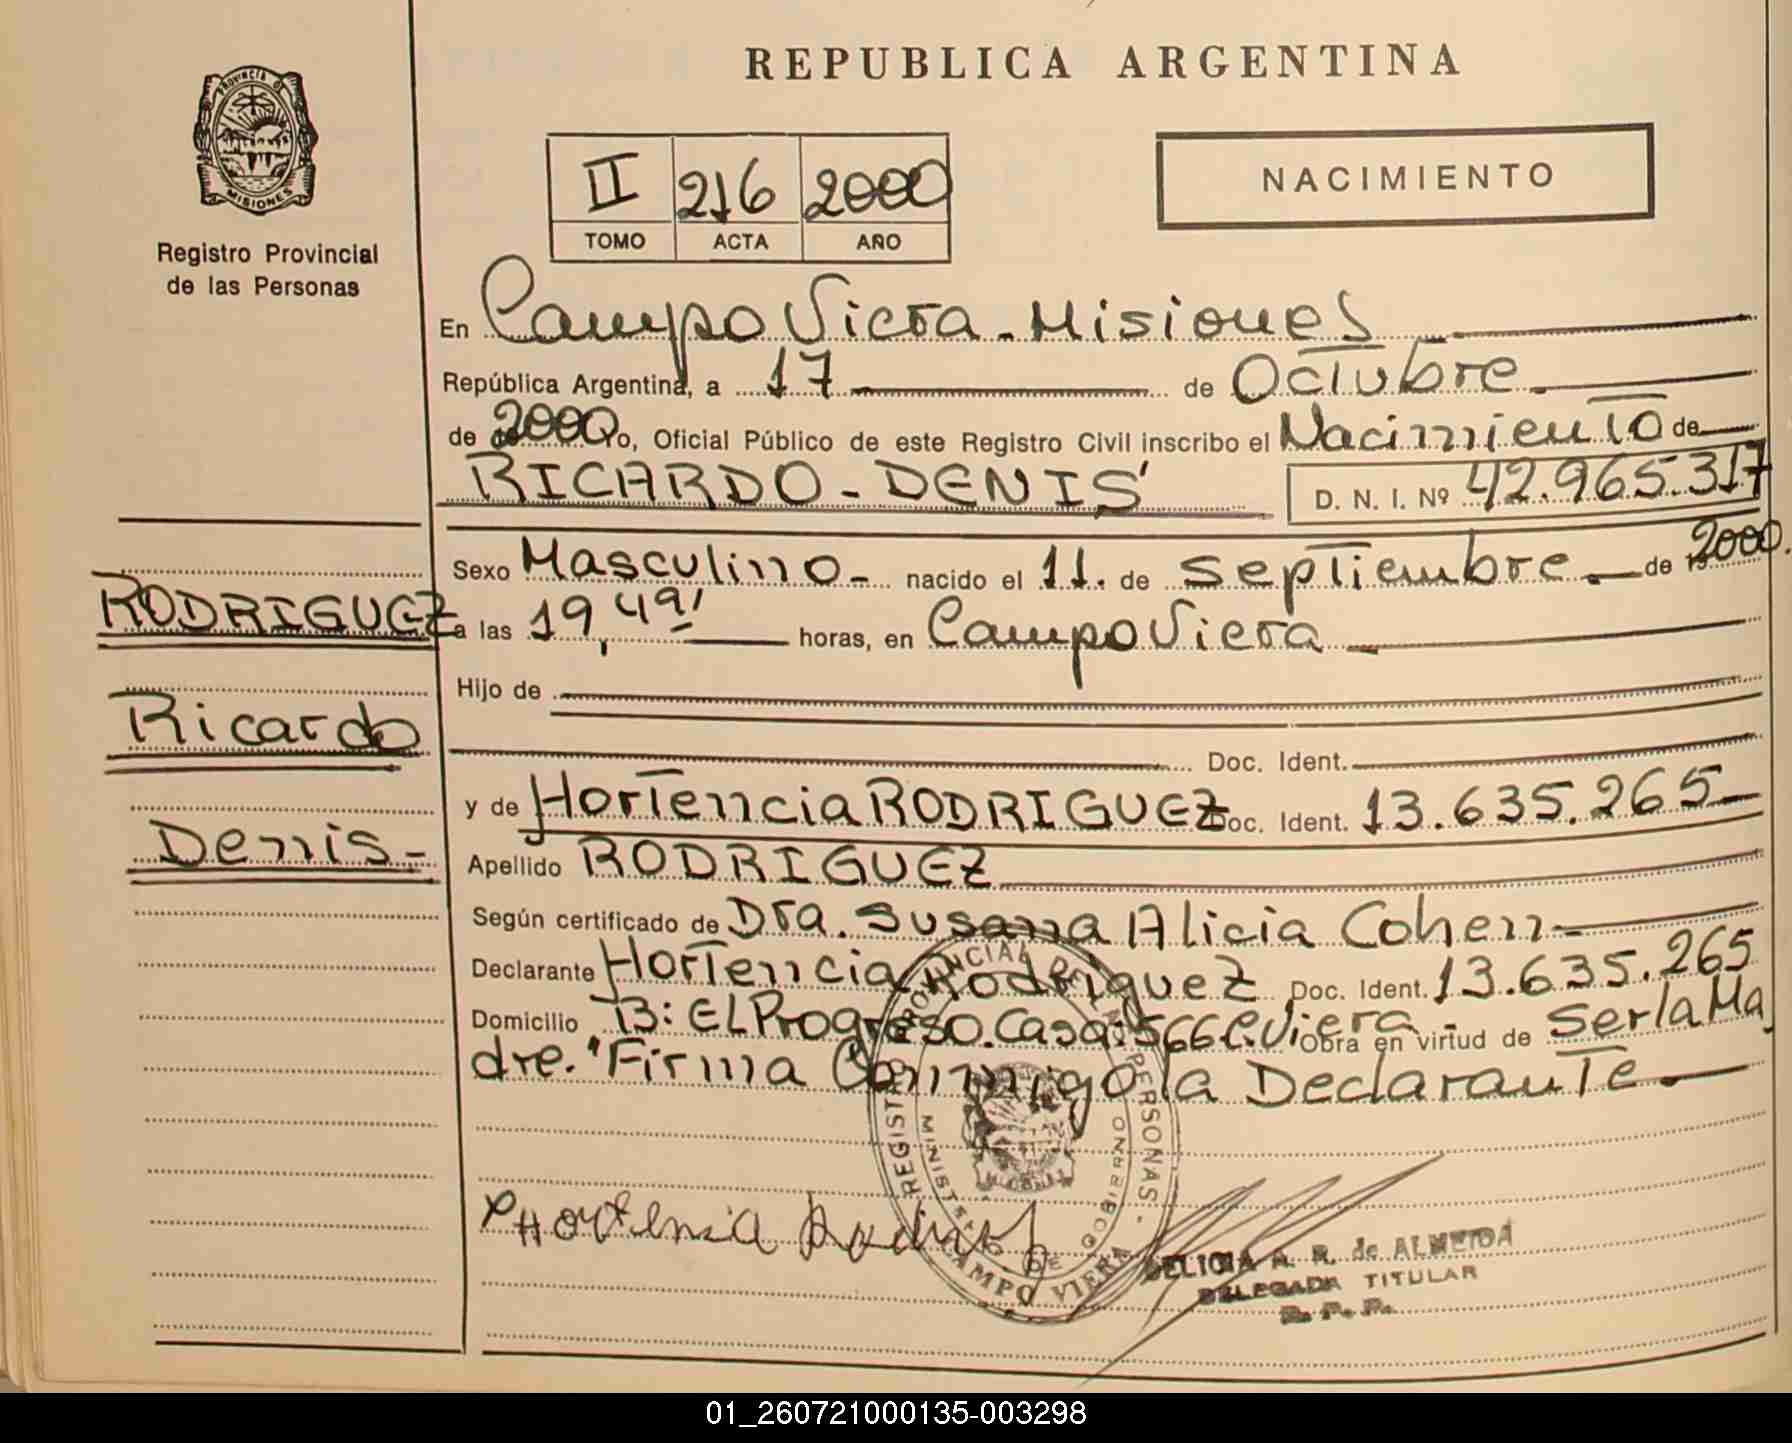 REPUBLICA ARGENTINA
PROVINCIA DE
MISIONES
Registro Provincial
de las Personas
II 216 2000
TOMO ACTA AÑO
NACIMIENTO
En Campo Viera - Misiones
República Argentina, a 17 de Octubre
de 2000 Yo, Oficial Público de este Registro Civil inscribo el Nacimiento de
RICARDO - DENIS D. N. I. Nº 42.965.317
Sexo Masculino - nacido el 11. de septiembre - de 2000.
a las 19, 49' horas, en Campo Viera
Hijo de
Doc. Ident.
y de Hortencia RODRIGUEZ Doc. Ident. 13.635.265
Apellido RODRIGUEZ
Según certificado de Dra. Susana Alicia Cohen
Declarante Hortencia Rodriguez Doc. Ident. 13.635.265
Domicilio B: EL Progreso. Casa: 566 C. Viera - Obra en virtud de Ser la Ma
dre. "Firma Conmigo la Declarante
RODRIGUEZ
Ricardo
Denis -
Hortensia
REGISTRO PROVINCIAL DE LAS PERSONAS
MINISTERIO DE GOBIERNO
CAMPO VIERA
DELICIA A. R. de ALMEIDA
DELEGADA TITULAR
R. P. P.
01_260721000135-003298